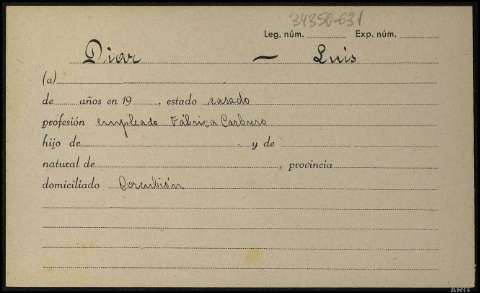 34356-631
Leg. núm. Exp. núm.
Diar — Luis
(a)
de años en 19 , estado casado
profesión empleado Fábrica Carburo
hijo de y de
natural de , provincia
domiciliado Corcubión